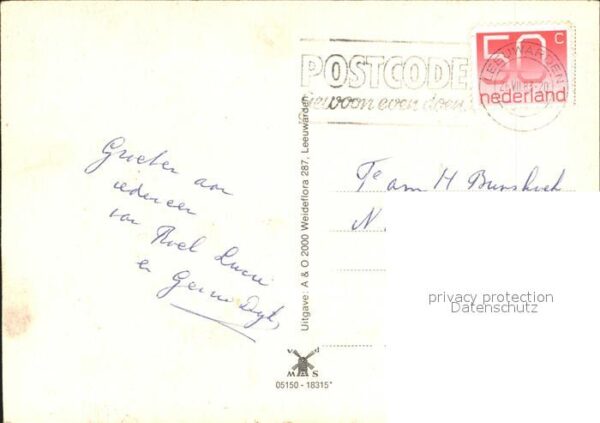 Groeten aan
iedereen
van Roel Lucie
en
POSTCODE
Gewoon even doen
50 c
nederland
LEEUWARDEN
Uitgave: A & O 2000 Weideflora 287, Leeuwarden
Team H
N.
privacy protection
Datenschutz
M S
05150 - 18315*